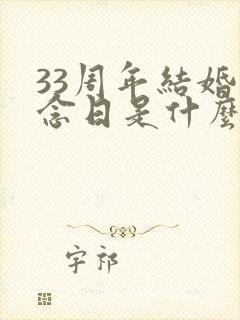 33周年結婚
念日是什麼
宇祁